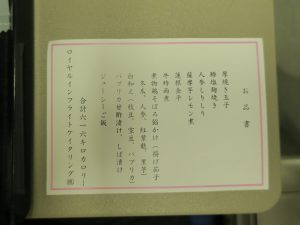 お品書
厚焼き玉子
鰆塩麹焼き
人参しりしり
薩摩芋レモン煮
蓮根金平
牛時雨煮
煮物鶏そぼろ餡かけ（揚げ茄子
冬瓜、人参、紅葉麩、里芋）
白和え（枝豆、空豆、パプリカ）
パプリカ甘酢漬け、しば漬け
ジューシーご飯
合計六一六キロカロリー
ロイヤルインフライトケイタリング㈱